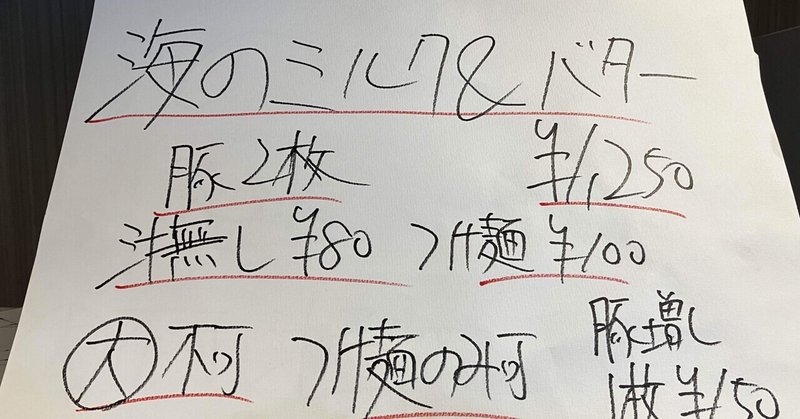 海のミルク&バター
豚2枚 ¥1,250
汁無し ¥80 つけ麺 ¥100
大 不可 つけ麺のみ可
豚増し
1枚 ¥150